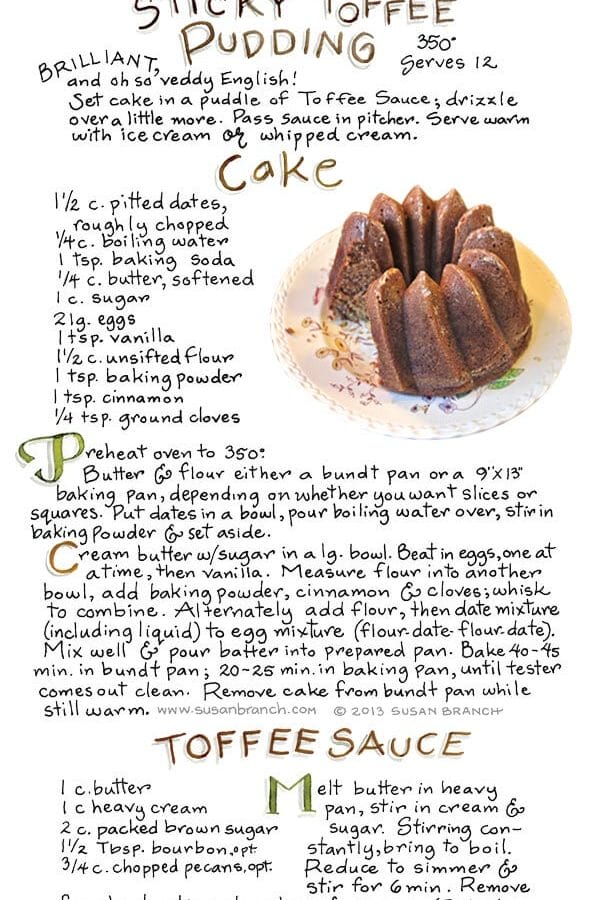 STICKY TOFFEE
PUDDING
350°
Serves 12
BRILLIANT,
and oh so veddy English!
Set cake in a puddle of Toffee Sauce; drizzle
over a little more. Pass sauce in pitcher. Serve warm
with ice cream or whipped cream.
Cake
1 1/2 c. pitted dates,
roughly chopped
1/4 c. boiling water
1 tsp. baking soda
1/4 c. butter, softened
1 c. sugar
2 lg. eggs
1 tsp. vanilla
1 1/2 c. unsifted flour
1 tsp. baking powder
1 tsp. cinnamon
1/4 tsp. ground cloves
Preheat oven to 350°.
Butter & flour either a bundt pan or a 9"x13"
baking pan, depending on whether you want slices or
squares. Put dates in a bowl, pour boiling water over, stir in
baking powder & set aside.
Cream butter w/sugar in a lg. bowl. Beat in eggs, one at
a time, then vanilla. Measure flour into another
bowl, add baking powder, cinnamon & cloves; whisk
to combine. Alternately add flour, then date mixture
(including liquid) to egg mixture (flour-date-flour-date).
Mix well & pour batter into prepared pan. Bake 40-45
min. in bundt pan; 20-25 min. in baking pan, until tester
comes out clean. Remove cake from bundt pan while
still warm. www.susanbranch.com © 2013 SUSAN BRANCH
TOFFEE SAUCE
1 c. butter
1 c heavy cream
2 c. packed brown sugar
1 1/2 Tbsp. bourbon, opt.
3/4 c. chopped pecans, opt.
Melt butter in heavy
pan, stir in cream &
sugar. Stirring con-
stantly, bring to boil.
Reduce to simmer &
stir for 6 min. Remove